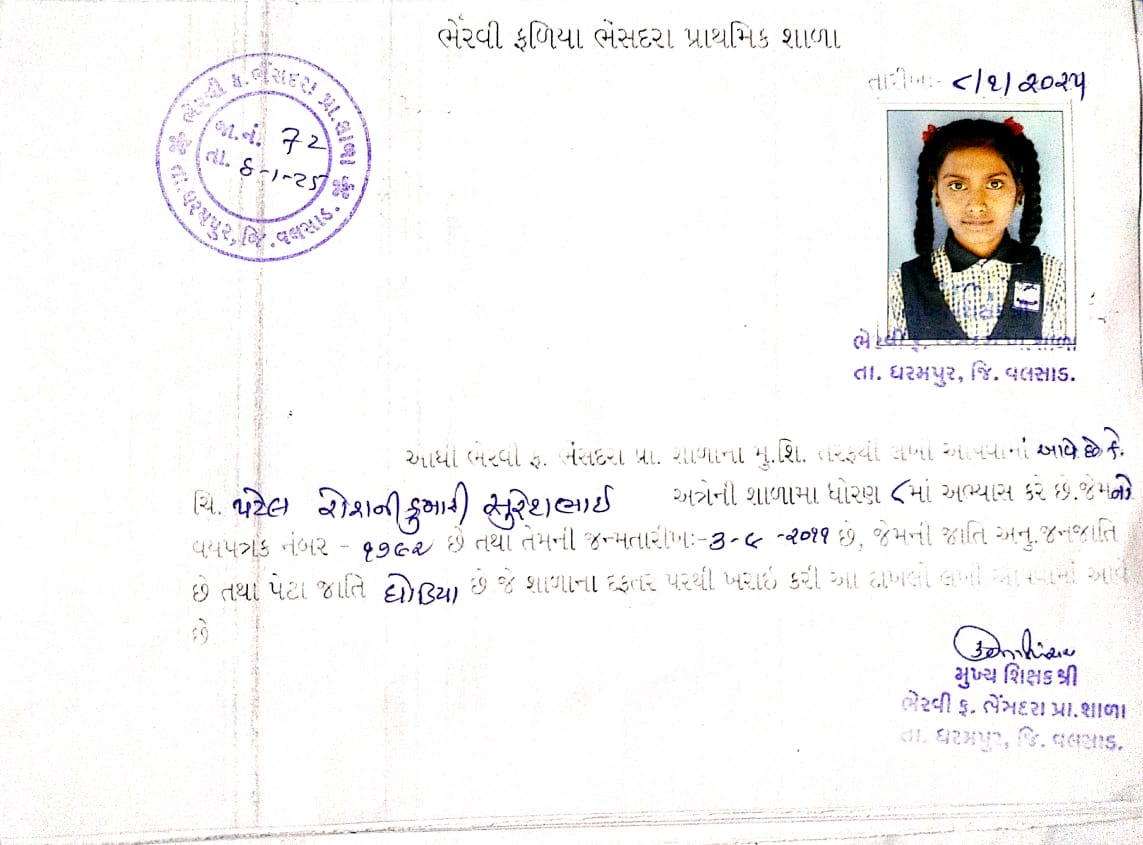 ભેરવી ફળિયા ભેંસદરા પ્રાથમિક શાળા
તારીખઃ- ૮/૧/૨૦૨૫
ભેરવી ફ. ભેંસદરા પ્રા. શાળા
તા. ધરમપુર, જિ. વલસાડ.
જા.નં. 72
તા. 8-1-25
ભેરવી ફ.
શાળા
તા. ધરમપુર, જિ. વલસાડ.
આથી ભેરવી ફ. ભેંસદરા પ્રા. શાળાના મુ.શિ. તરફથી લખી આપવામાં આવે છે કે.
ચિ. પટેલ રોશનીકુમારી સુરેશભાઈ અત્રેની શાળામા ધોરણ ૮માં અભ્યાસ કરે છે.જેમનો
વયપત્રક નંબર - ૧૭૯૨ છે તથા તેમની જન્મતારીખઃ-૩-૯-૨૦૧૧ છે, જેમની જાતિ અનુ.જનજાતિ
છે તથા પેટા જાતિ ધોડિયા છે જે શાળાના દફતર પરથી ખરાઇ કરી આ દાખલો લખી આપવામાં આવે
છે.
મુખ્ય શિક્ષકશ્રી
ભેરવી ફ. ભેંસદરા પ્રા.શાળા
તા. ધરમપુર, જિ. વલસાડ.